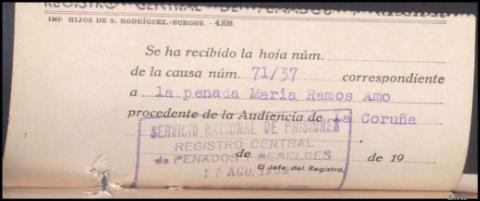 REGISTRO CENTRAL DE PENADOS Y REBELDES
IMP HIJOS DE S. RODRÍGUEZ.-BURGOS. - 4308
Se ha recibido la hoja núm.
de la causa núm. 71/37 correspondiente
a la penada Maria Ramos Amo
procedente de la Audiencia de La Coruña
SERVICIO NACIONAL DE PRISIONES
REGISTRO CENTRAL
de PENADOS y REBELDES
de de 19
AGO.
El Jefe del Registro,